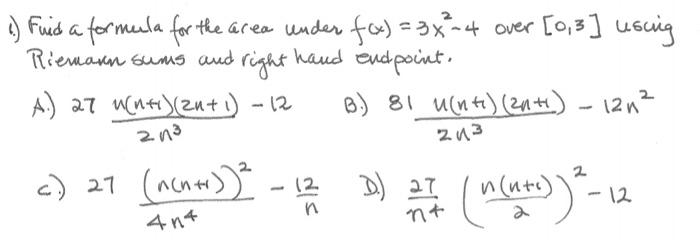 1.) Find a formula for the area under f(x) = 3x²-4 over [0,3] using
Riemann sums and right hand endpoint.
A.) 27 n(n+1)(2n+1)/2n³ - 12 B.) 81 n(n+1)(2n+1)/2n³ - 12n²
c.) 27 (n(n+1))²/4n⁴ - 12/n D.) 27/n⁴ (n(n+1)/2)² - 12